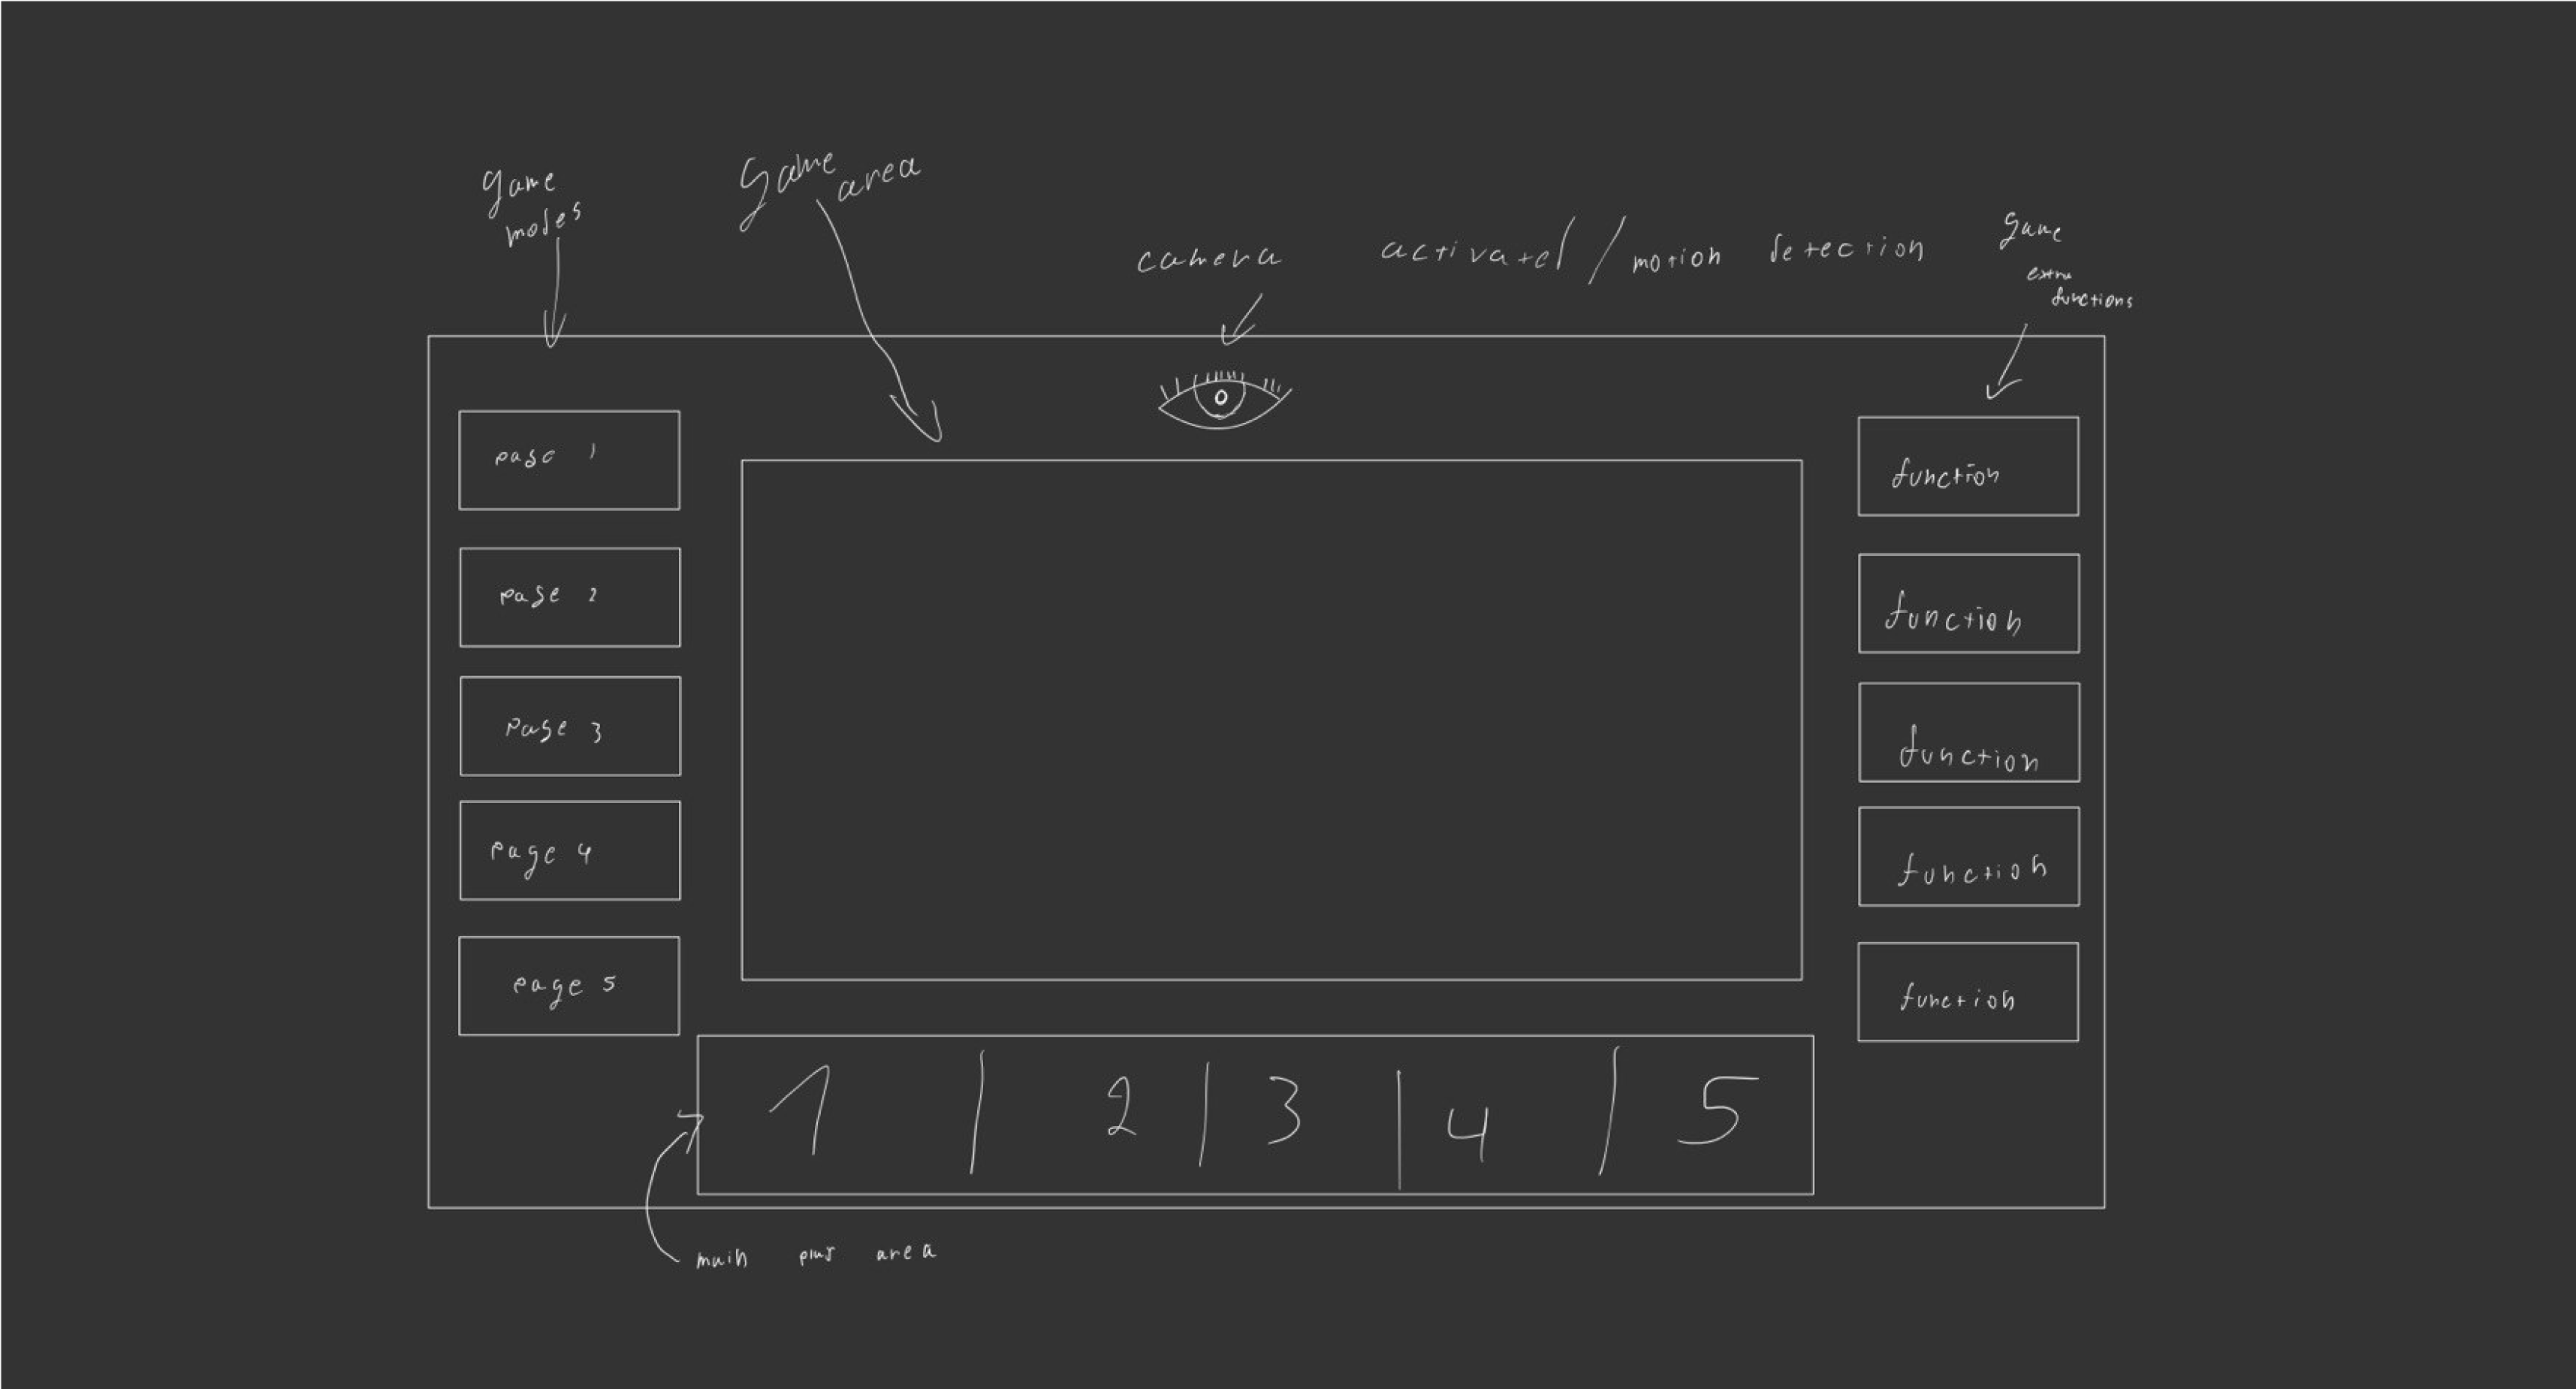 game
modes
game
area
camera activated / motion detection
game
extra
functions
page 1
page 2
page 3
page 4
page 5
function
function
function
function
function
1 | 2 | 3 | 4 | 5
main area